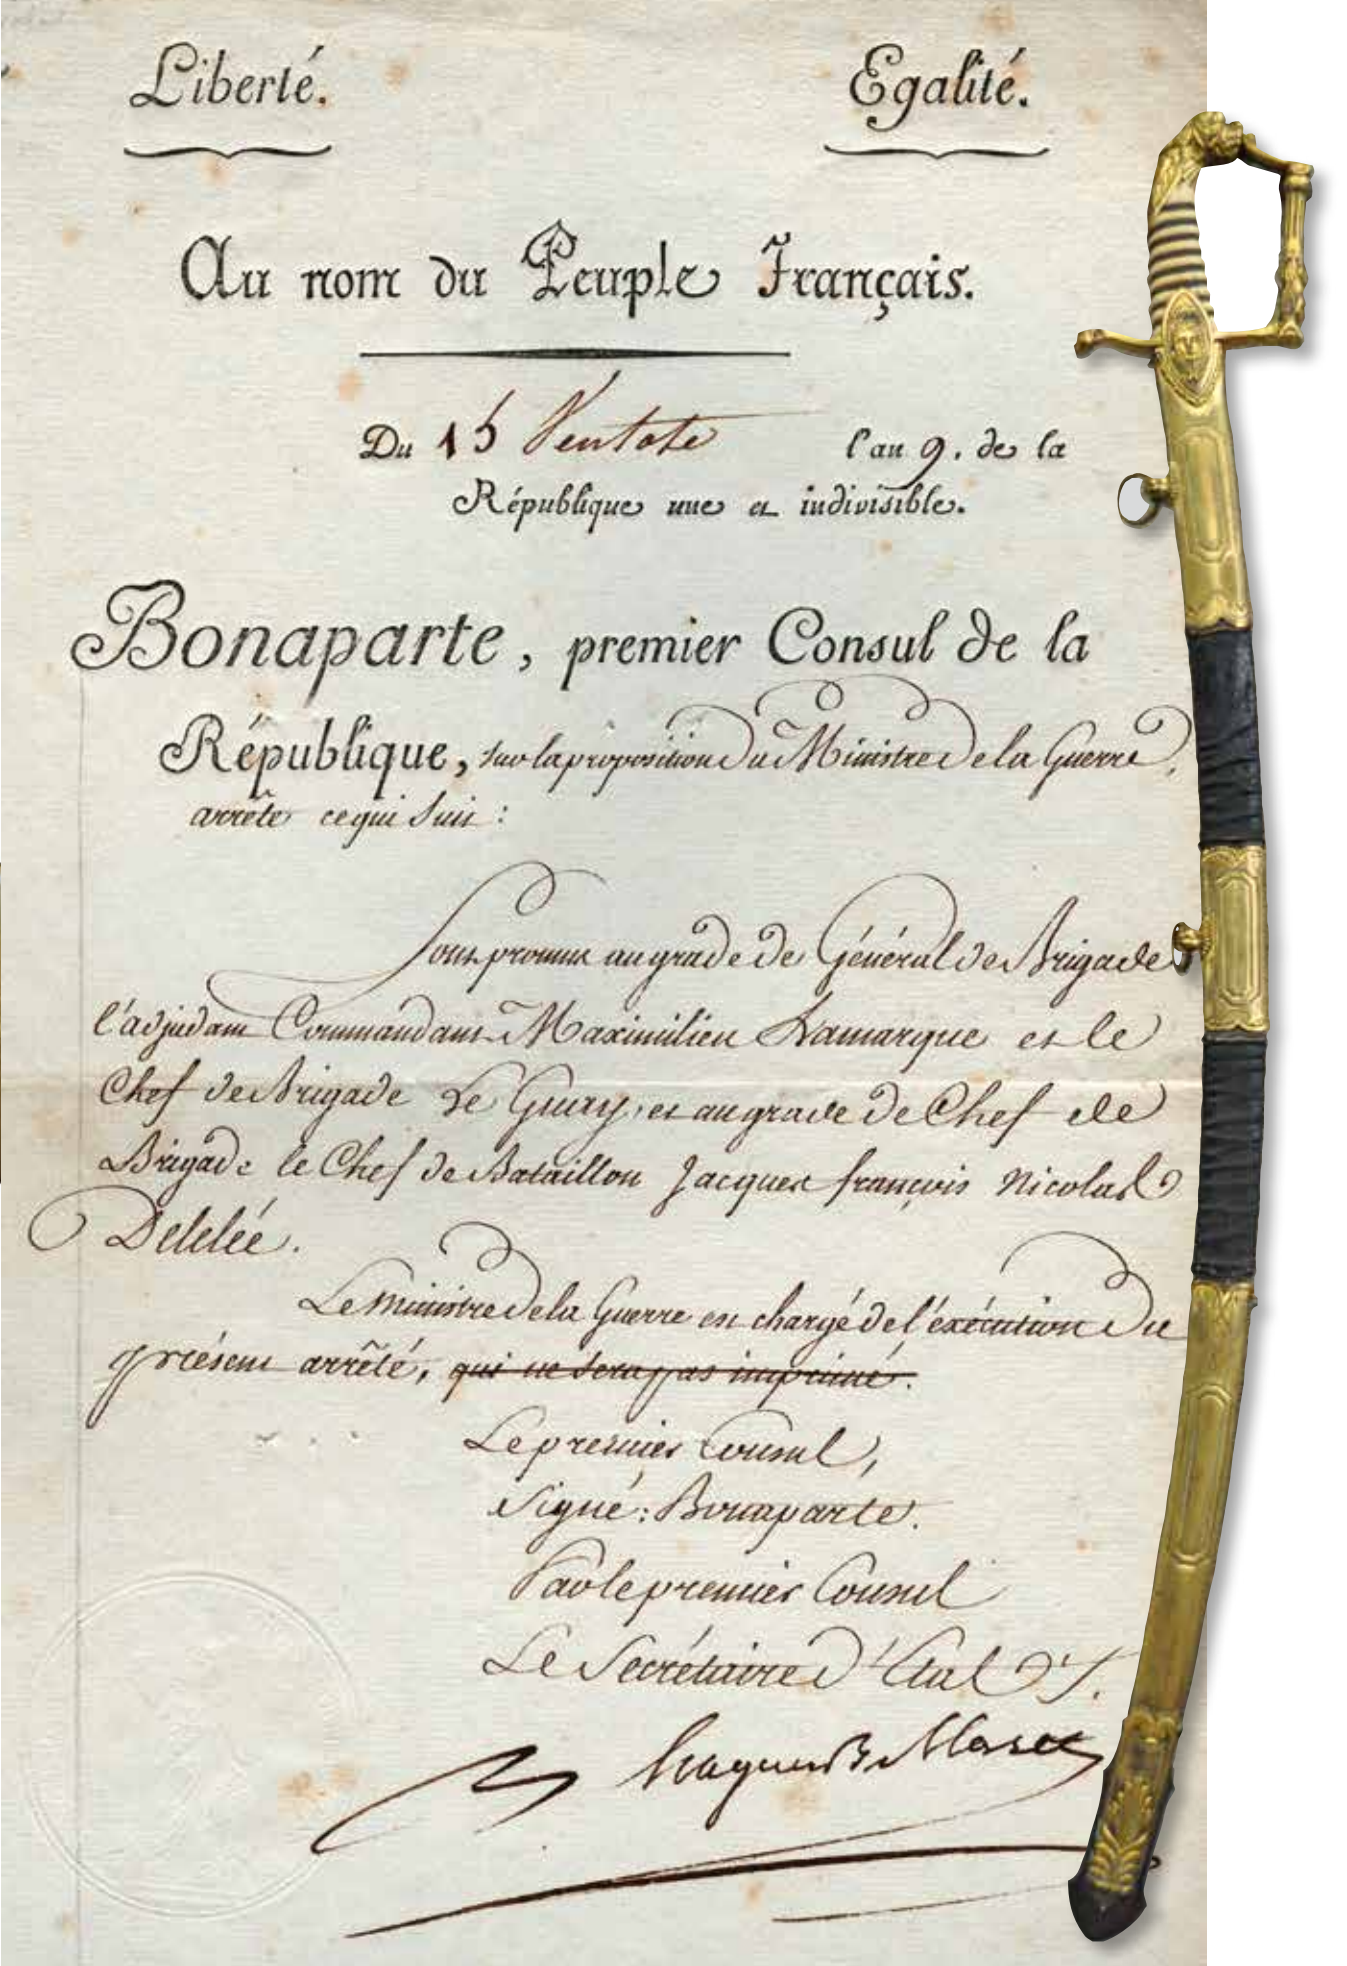 Liberté. Egalité.
Au nom du Peuple Français.
Du 15 Ventose l'an 9. de la
République une et indivisible.
Bonaparte, premier Consul de la
République, sur la proposition du Ministre de la Guerre,
arrête ce qui suit :
Sont promus au grade de Général de Brigade
l'adjudant Commandant Maximilien Lamarque et le
Chef de Brigade Le Guay, et au grade de Chef de
Brigade le Chef de Bataillon Jacques françois Nicolas
Delelée.
Le ministre de la Guerre est chargé de l'éxécution du
présent arrêté, qui ne sera pas imprimé.
Le premier Consul,
Signé : Bonaparte.
Par le premier Consul
Le Secrétaire d'Etat
hugues B Maret